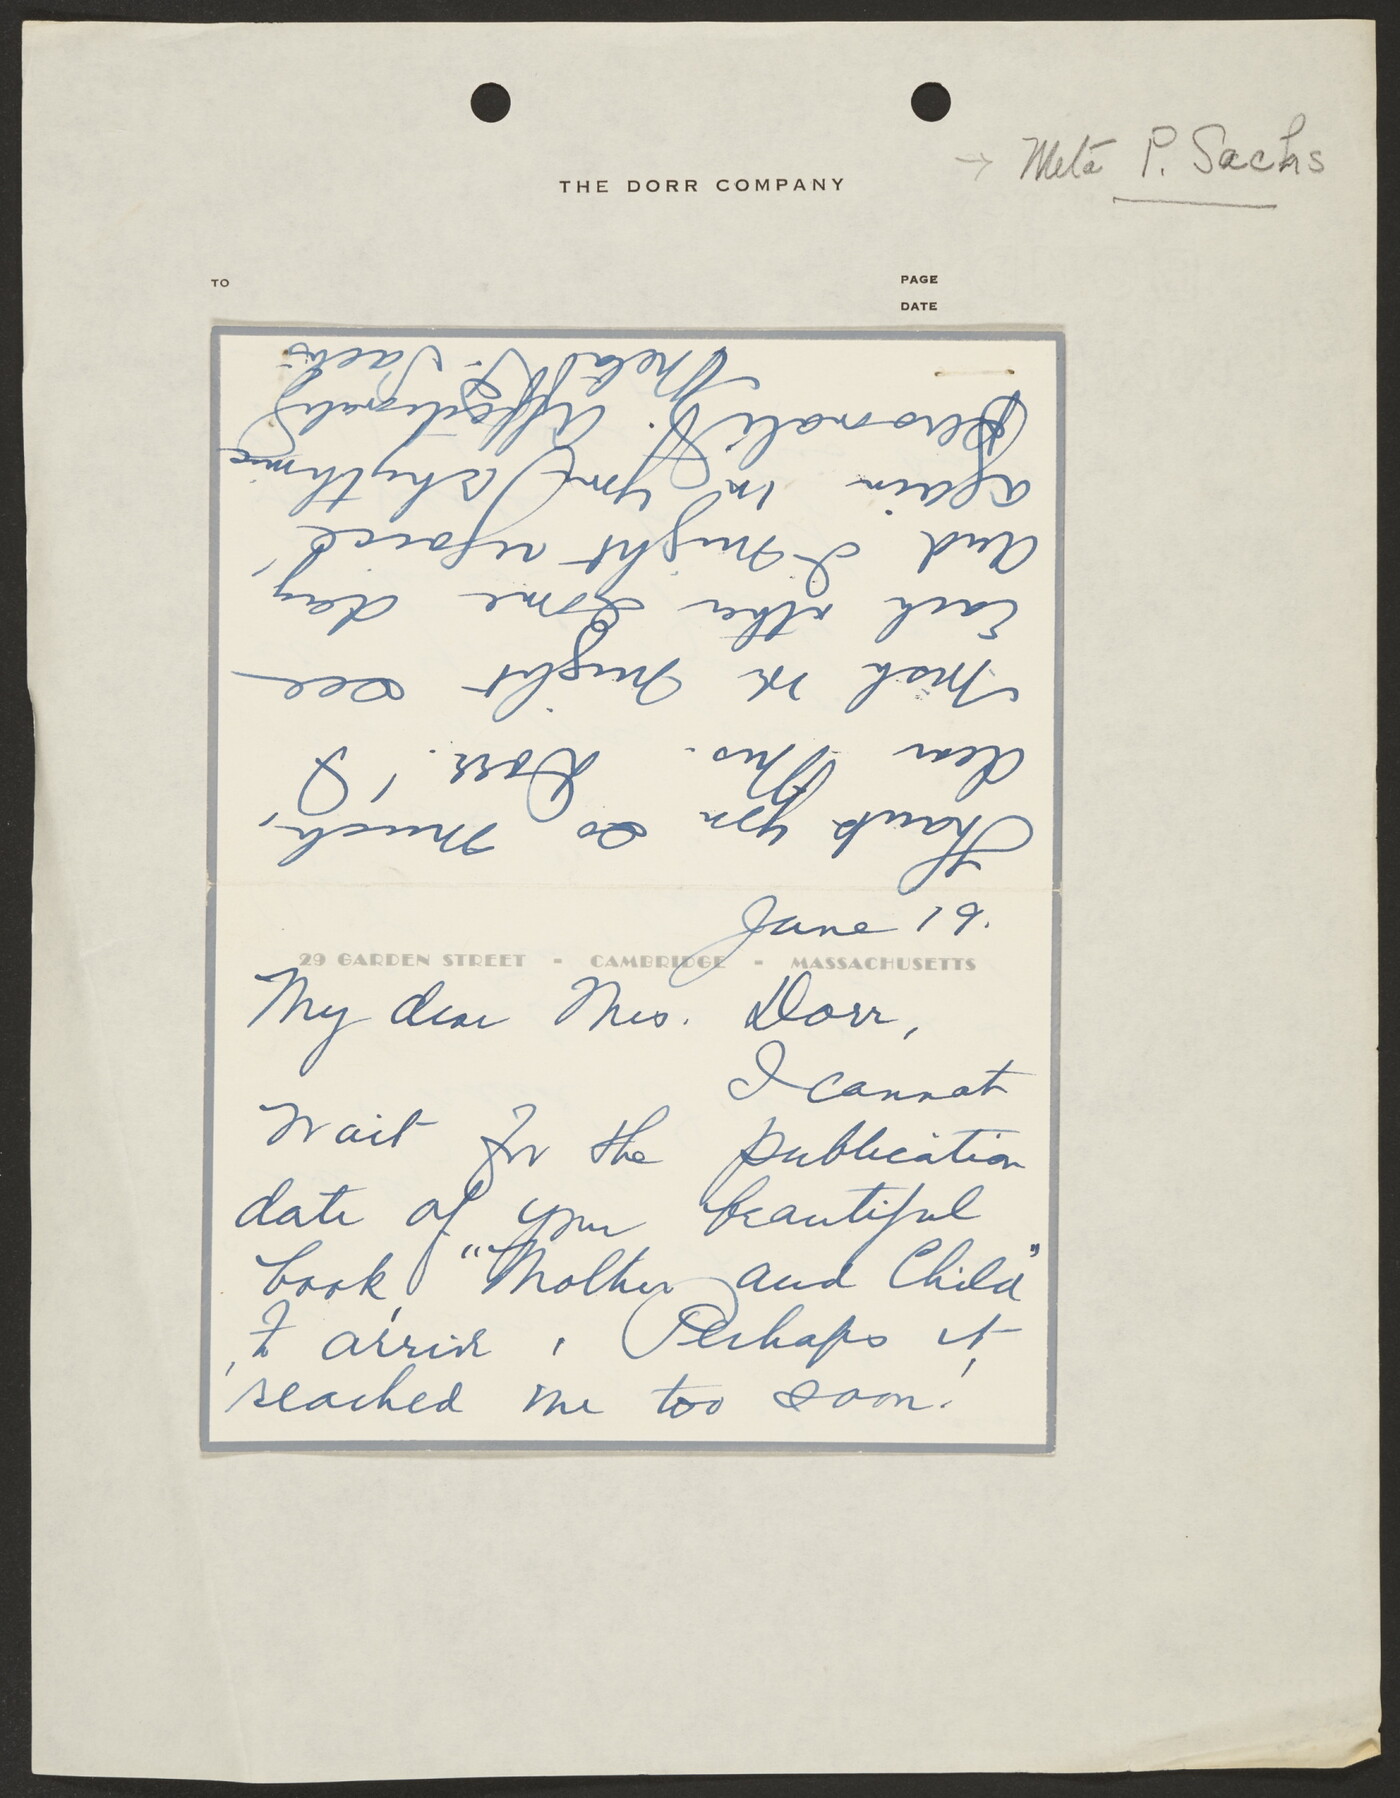 → Meta P. Sachs
THE DORR COMPANY
TO
PAGE
DATE
June 19.
29 GARDEN STREET - CAMBRIDGE - MASSACHUSETTS
My dear Mrs. Dorr,
I cannot
wait for the publication
date of your beautiful
book, "Mother and Child"
to arrive. Perhaps it
reached me too soon!
Thank you so much,
dear Mrs. Dorr! I
wish we might see
each other some day,
and I might rejoice
again in your rhythmic
personality. Affectionately
Meta P. Sachs